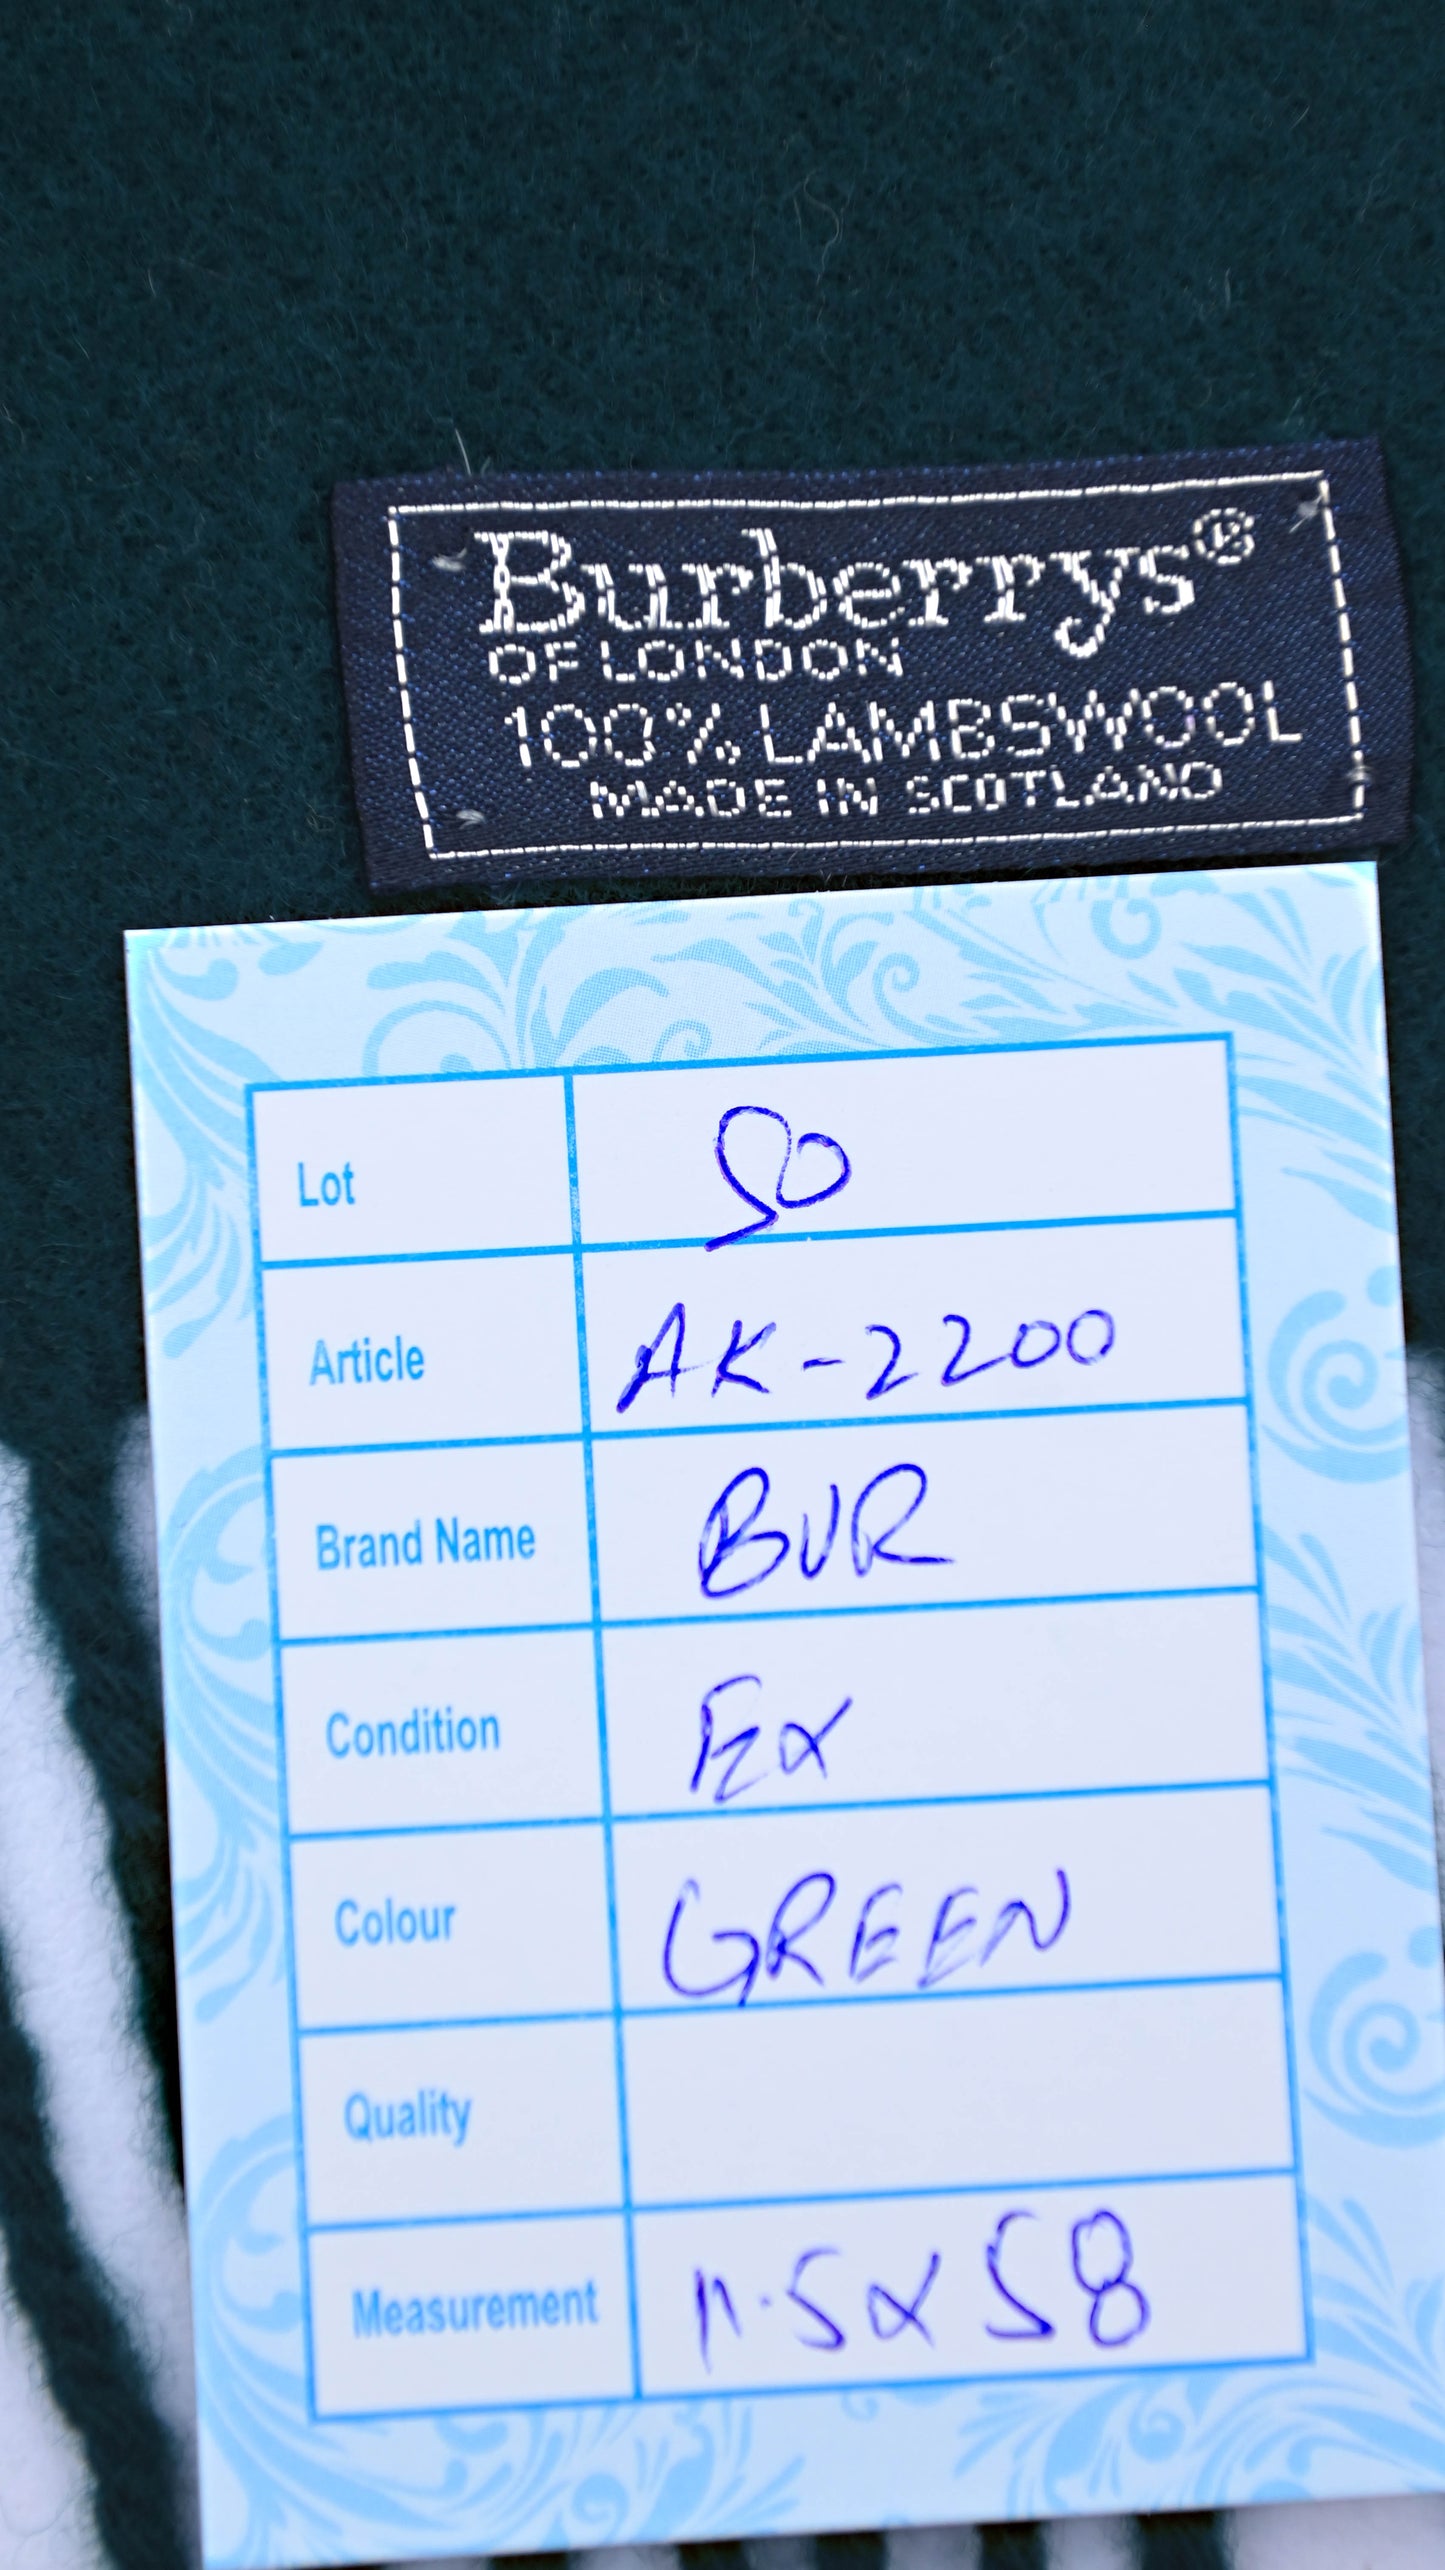 Burberrys®
OF LONDON
100% LAMBSWOOL
MADE IN SCOTLAND
Lot
Article AK-2200
Brand Name BUR
Condition Ex
Colour GREEN
Quality
Measurement 11.5x58